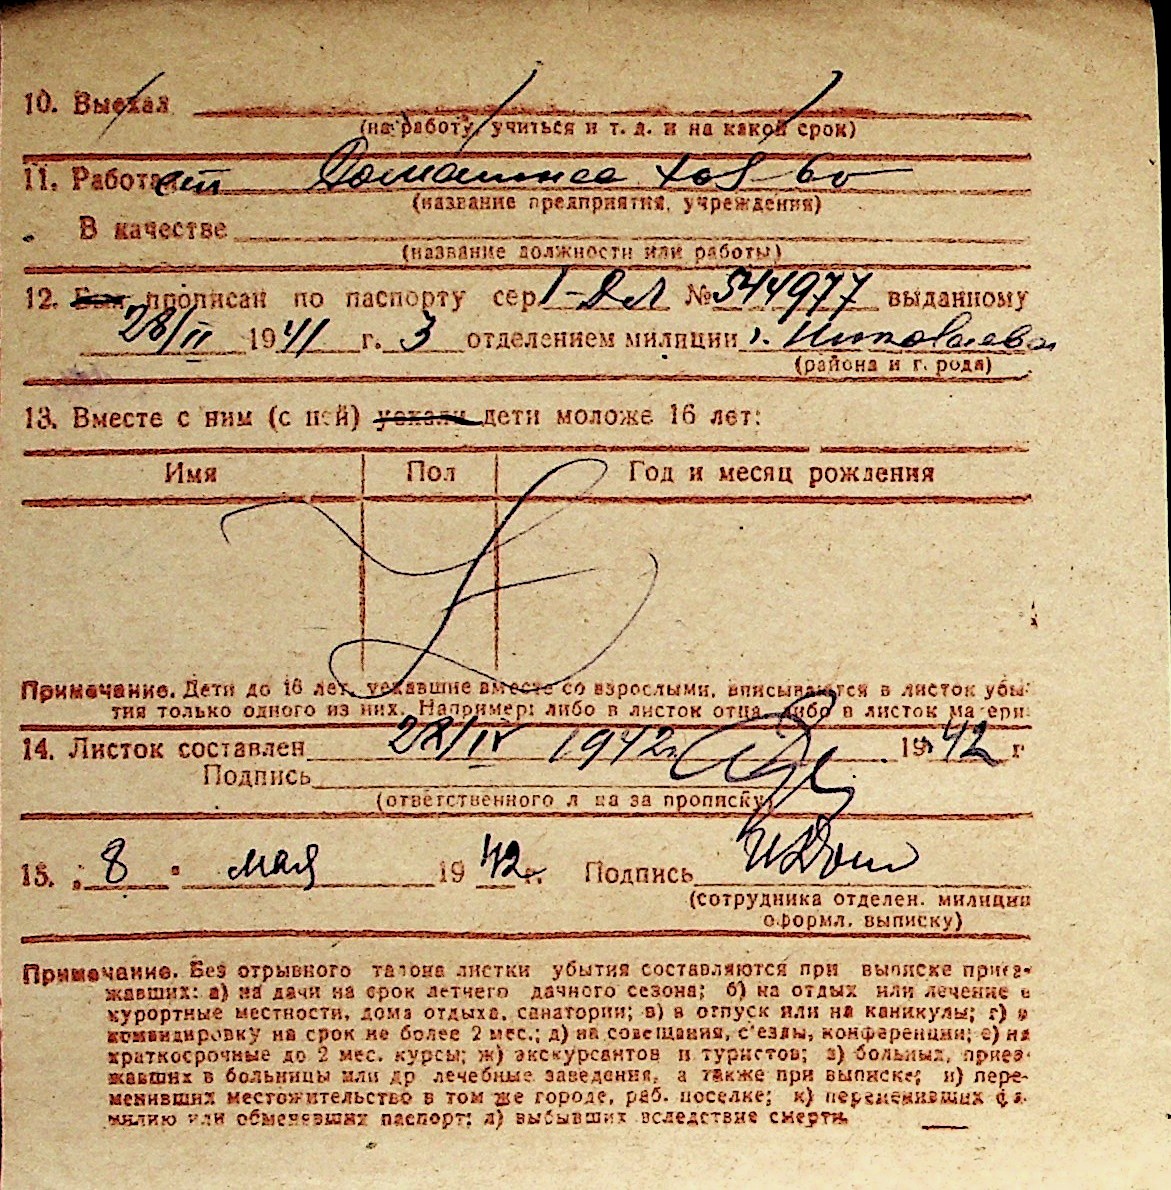 10. Выехал
(на работу, учиться и т. д. и на какой срок)
11. Работает Домашнее хоз-во
(название предприятия, учреждения)
В качестве
(название должности или работы)
12. Был прописан по паспорту сер. I-ДЛ № 544977 выданному
28/II 1941 г. 3 отделением милиции г. Николаева
(района и г. рода)
13. Вместе с ним (с ней) уехали дети моложе 16 лет:
Имя Пол Год и месяц рождения
Примечание. Дети до 16 лет, уехавшие вместе со взрослыми, вписываются в листок убы-
тия только одного из них. Например: либо в листок отца, либо в листок матери.
14. Листок составлен 28/IV 1942 г. 1942 г
Подпись
(ответственного л на за прописку)
15. „8" мая 1942 г. Подпись
(сотрудника отделен. милиции
оформл. выписку)
Примечание. Без отрывного талона листки убытия составляются при выписке приез-
жавших: а) на дачи на срок летнего дачного сезона; б) на отдых или лечение в
курортные местности, дома отдыха, санатории; в) в отпуск или на каникулы; г) в
командировку на срок не более 2 мес.; д) на совещания, с'езды, конференции; е) на
краткосрочные до 2 мес. курсы; ж) экскурсантов и туристов; з) больных, приез-
жавших в больницы или др лечебные заведения, а также при выписке; и) пере-
менивших местожительство в том же городе, раб. поселке; к) переменивших фа-
милию или обменявших паспорт; л) выбывших вследствие смерти.